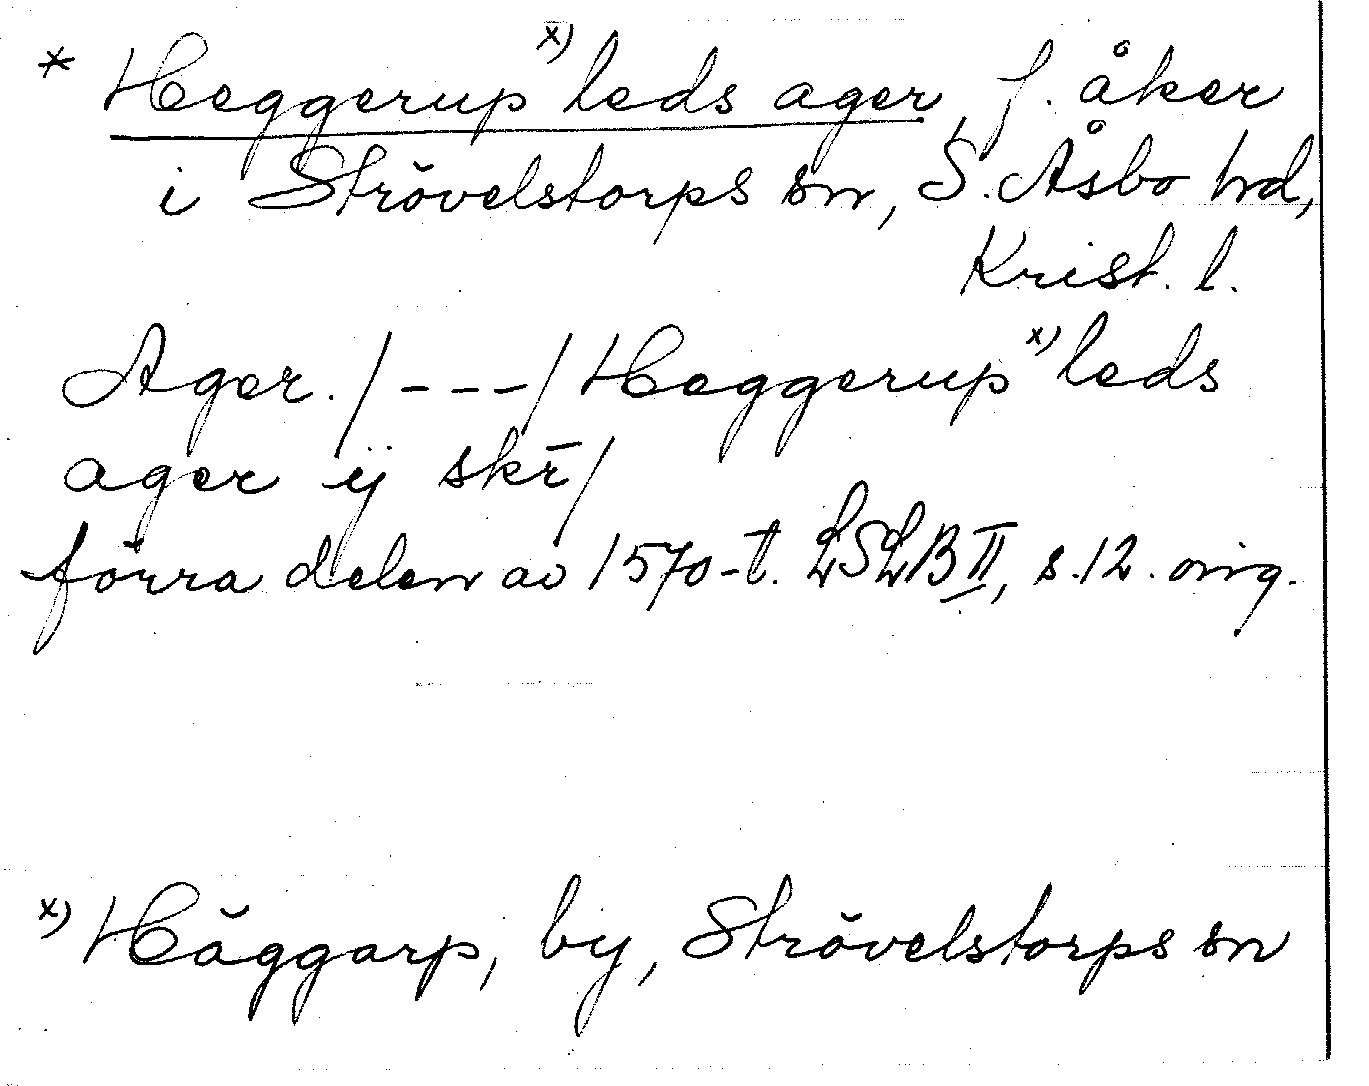 * Heggerup x) leds ager, f. åker
i Strövelstorps sn, S. Åsbo hd,
Krist. l.
Ager. /---/ Heggerup x) leds
ager ÿ skr̄/
förra delen av 1570-t. LSLB II, s. 12. orig.
x) Häggarp, by, Strövelstorps sn